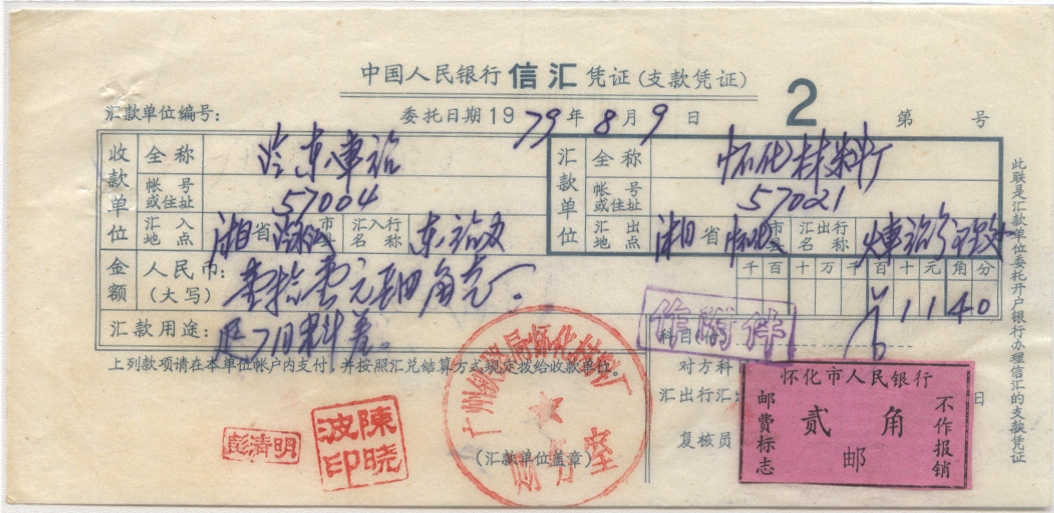 中国人民银行信汇凭证(支款凭证)
2
汇款单位编号:
委托日期1979年8月9日
第 号
收款单位
全称
汇款单位
全称 怀化材料厂
帐号或住址 57004
帐号或住址 57021
汇入地点 湘省 市县
汇入行名称
汇出地点 湘省 市县
汇出行名称
金额
人民币:(大写) 壹拾壹元肆角
千百十万千百十元角分
¥1140
汇款用途:
作附件
科目
上列款项请在本单位帐户内支付,并按照汇兑结算方式规定拨给收款单位。
对方科
汇出行汇
日
复核员
(汇款单位盖章)
广州铁路局怀化材料厂
财务室
彭清明
陳晓波印
怀化市人民银行
邮费标志
贰角
邮
不作报销
此联是汇款单位委托开户银行办理信汇的支款凭证